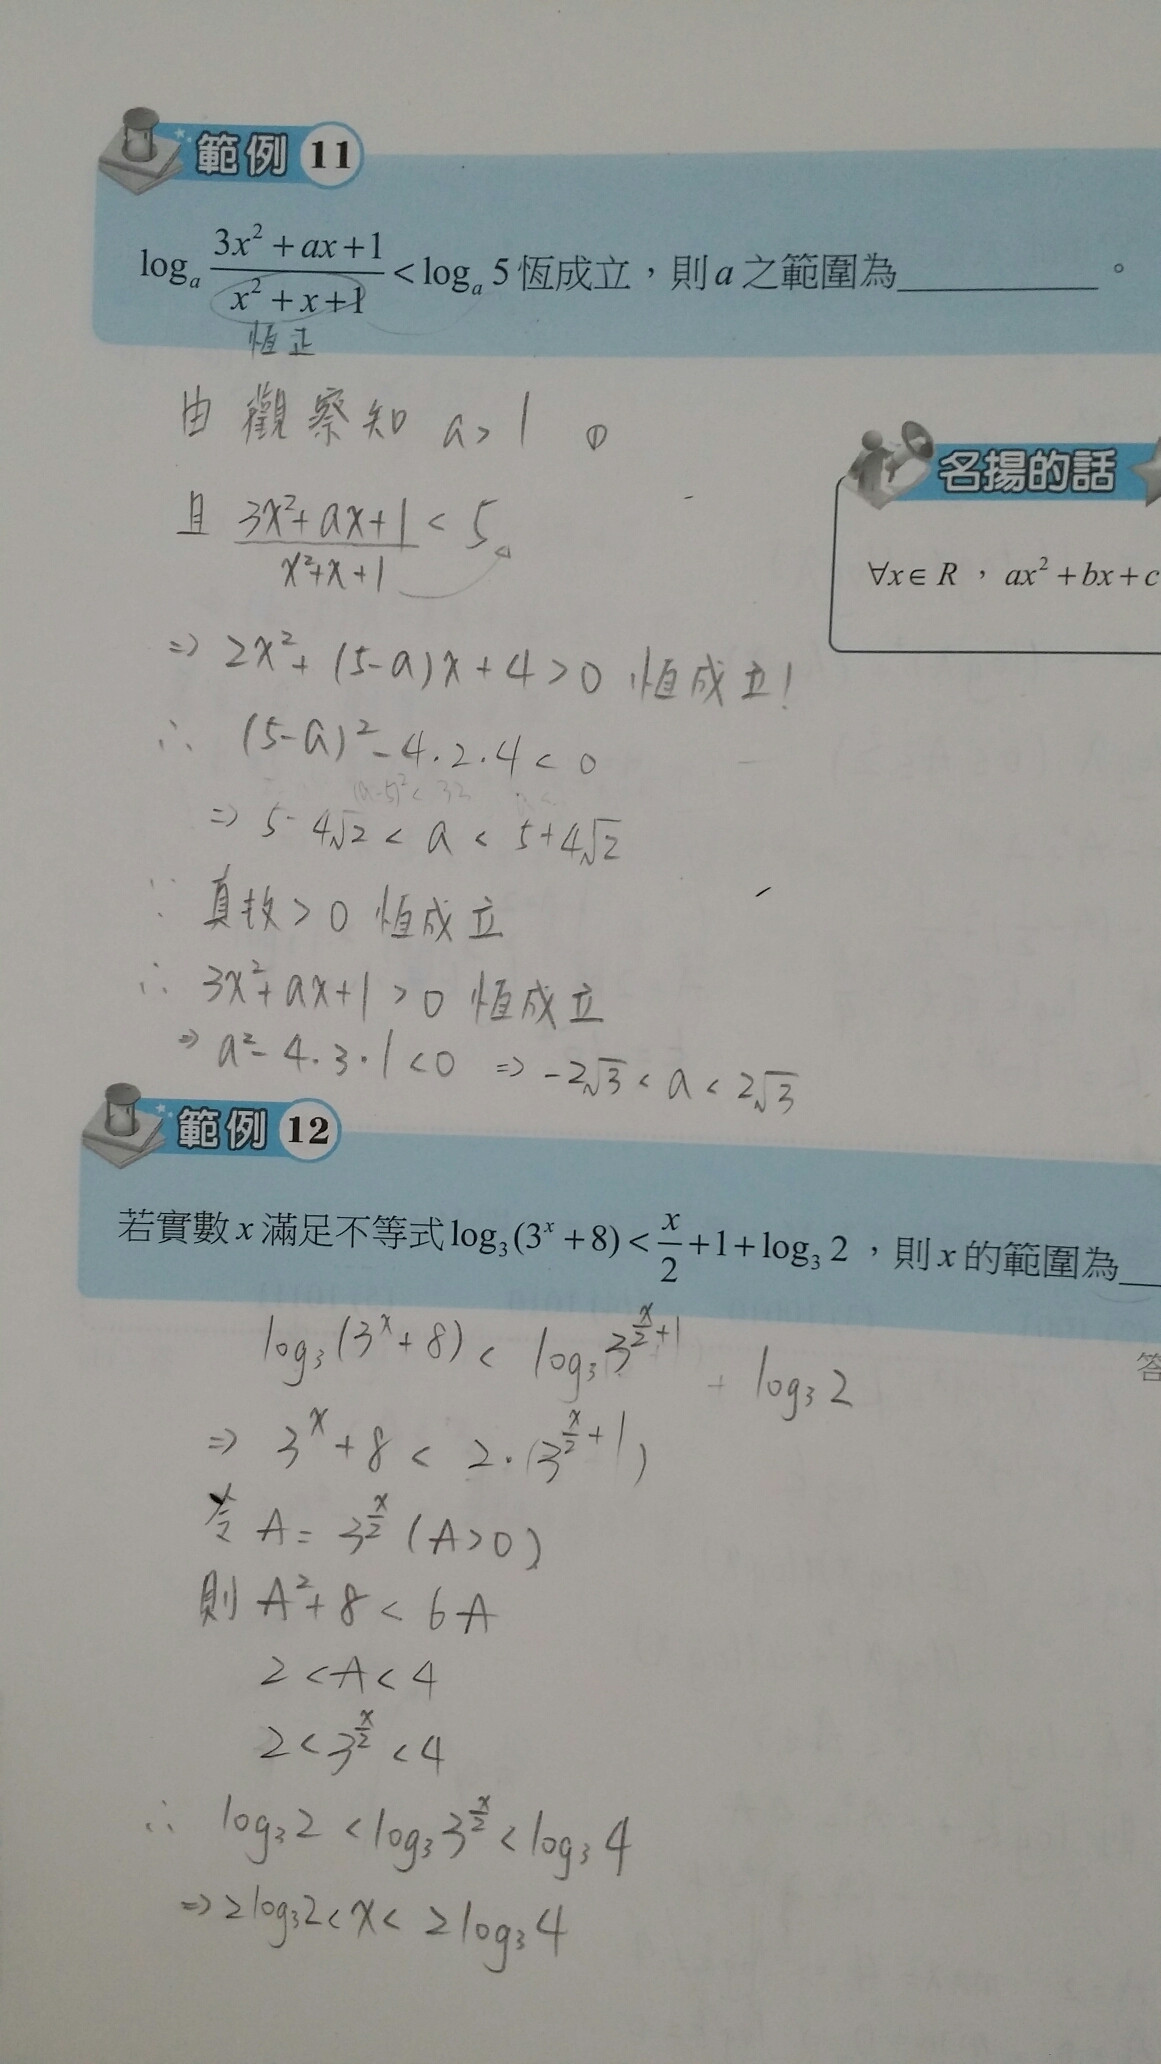 範例 11
logₐ (3x² + ax + 1)/(x² + x + 1) < logₐ 5 恆成立，則 a 之範圍為__________。
恆正
由觀察知 a > 1 ①
且 (3x² + ax + 1)/(x² + x + 1) < 5
名揚的話
∀x ∈ R ， ax² + bx + c
⇒ 2x² + (5-a)x + 4 > 0 恆成立!
∴ (5-a)² - 4·2·4 < 0
(a-5)² < 32
⇒ 5 - 4√2 < a < 5 + 4√2
∵ 真數 > 0 恆成立
∴ 3x² + ax + 1 > 0 恆成立
⇒ a² - 4·3·1 < 0 ⇒ -2√3 < a < 2√3
範例 12
若實數 x 滿足不等式 log₃(3ˣ + 8) < x/2 + 1 + log₃ 2 ，則 x 的範圍為__
答
log₃(3ˣ + 8) < log₃ 3^(x/2 + 1) + log₃ 2
⇒ 3ˣ + 8 < 2·(3^(x/2 + 1))
令 A = 3^(x/2) (A > 0)
則 A² + 8 < 6A
2 < A < 4
2 < 3^(x/2) < 4
∴ log₃ 2 < log₃ 3^(x/2) < log₃ 4
⇒ 2log₃2 < x < 2log₃4